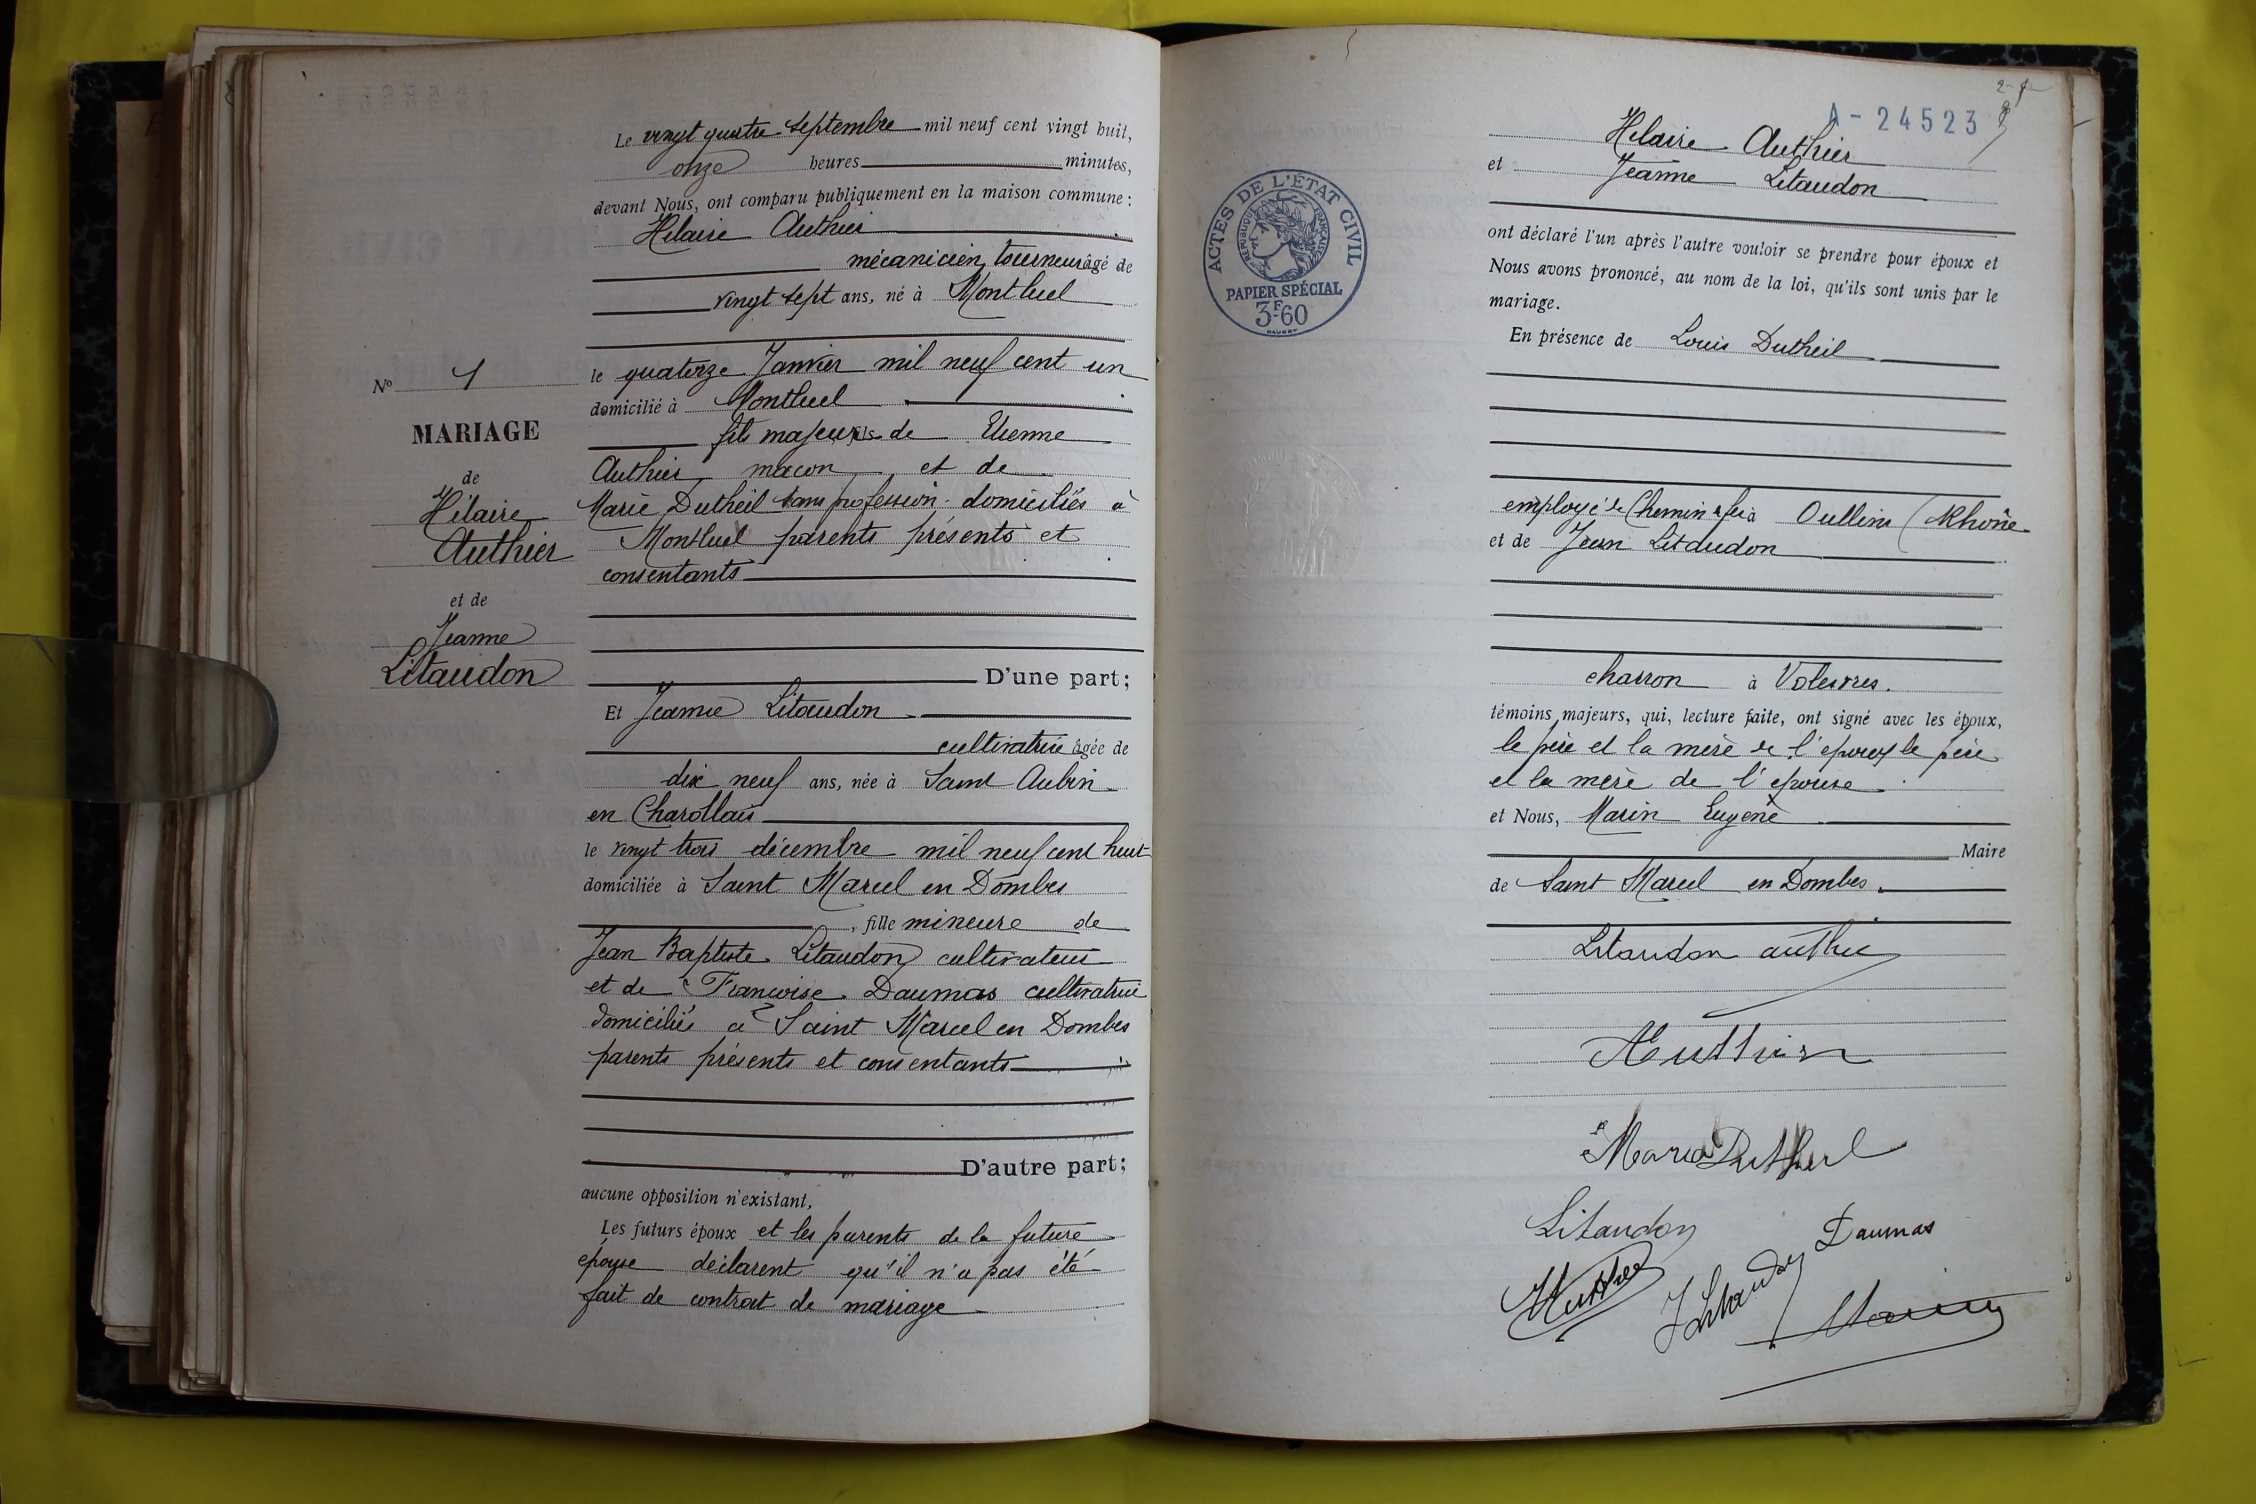 Le vingt quatre septembre mil neuf cent vingt huit,
onze heures minutes,
devant Nous, ont comparu publiquement en la maison commune :
Hilaire Authier
mécanicien, tourneur âgé de
vingt sept ans, né à Montluel
le quatorze Janvier mil neuf cent un
domicilié à Montluel
fils majeur fils de Etienne
Authier maçon et de
Marie Dutheil sans profession domiciliés à
Montluel parents présents et
consentants
D'une part;
Et Jeanne Litaudon
cultivatrice âgée de
dix neuf ans, née à Saint Aubin
en Charollais
le vingt trois décembre mil neuf cent huit
domiciliée à Saint Marcel en Dombes
, fille mineure de
Jean Baptiste Litaudon cultivateur
et de Françoise Daumas cultivatrice
domiciliés à Saint Marcel en Dombes
parents présents et consentants
D'autre part;
aucune opposition n'existant,
Les futurs époux et les parents de la future
épouse déclarent qu'il n'a pas été
fait de contrat de mariage
No 1
MARIAGE
de
Hilaire
Authier
et de
Jeanne
Litaudon
A-24523
ACTES DE L'ÉTAT CIVIL
RÉPUBLIQUE FRANÇAISE
PAPIER SPÉCIAL
3F60
Hilaire Authier
et Jeanne Litaudon
ont déclaré l'un après l'autre vouloir se prendre pour époux et
Nous avons prononcé, au nom de la loi, qu'ils sont unis par le
mariage.
En présence de Louis Dutheil
employé de Chemin de fer à Oullins (Rhône
et de Jean Litaudon
charron à Volesvres.
témoins majeurs, qui, lecture faite, ont signé avec les époux,
le père et la mère de l'époux le père
et la mère de l'épouse
et Nous, Marin Eugène
Maire
de Saint Marcel en Dombes.
Litaudon authier
Authier
Maria Dutheil
Litaudon
Daumas
J Litaudon
Marin